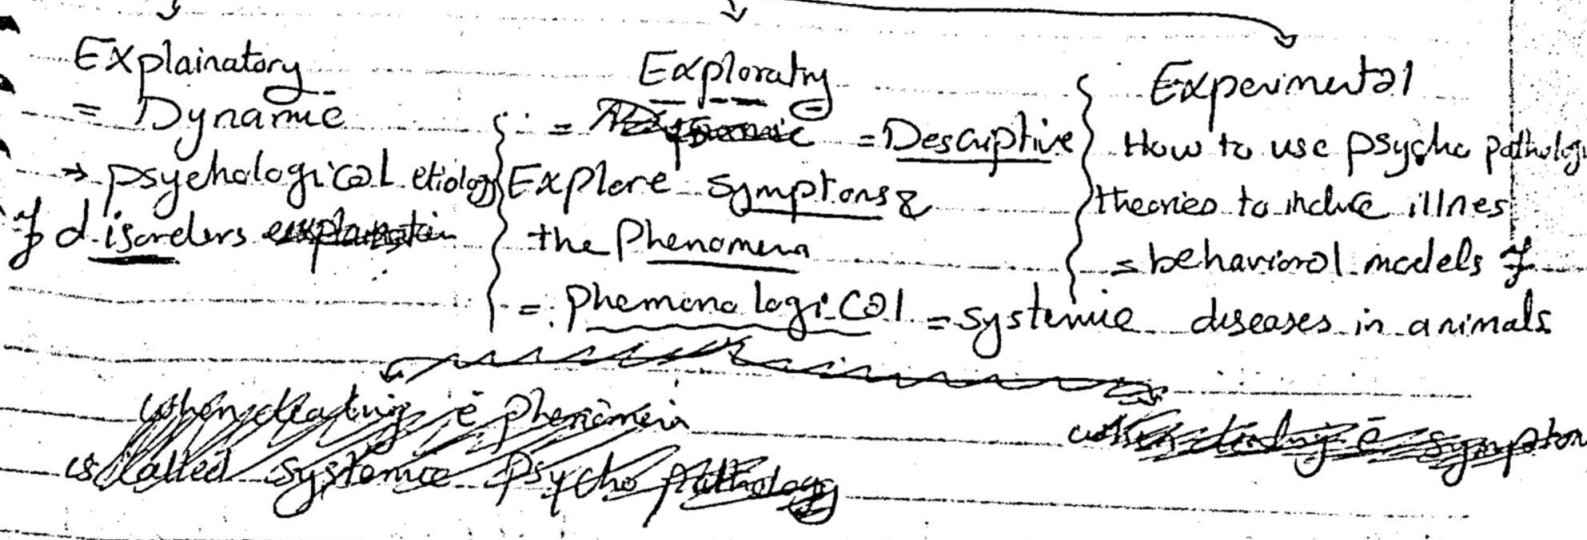 Explainatory
= Dynamic
→ psychological etiology
of disorders explanation
Exploratry
= = Descriptive
Explore symptons &
the Phenomena
= phemenological = systemic
Experimental
How to use psycho patholog
theories to induce illnes
= behavioral models of
diseases in animals
when dealing ē phenomein
is called systemic psycho pathology
when dealing ē symptom